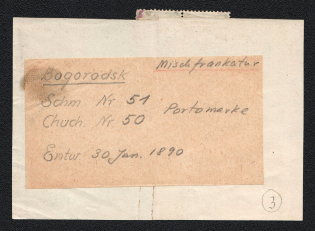 Mischfrankatur
Bogorodsk
Schm Nr 51
Portomarke
Chuch. Nr 50
Entw. 30 Jan. 1890
3